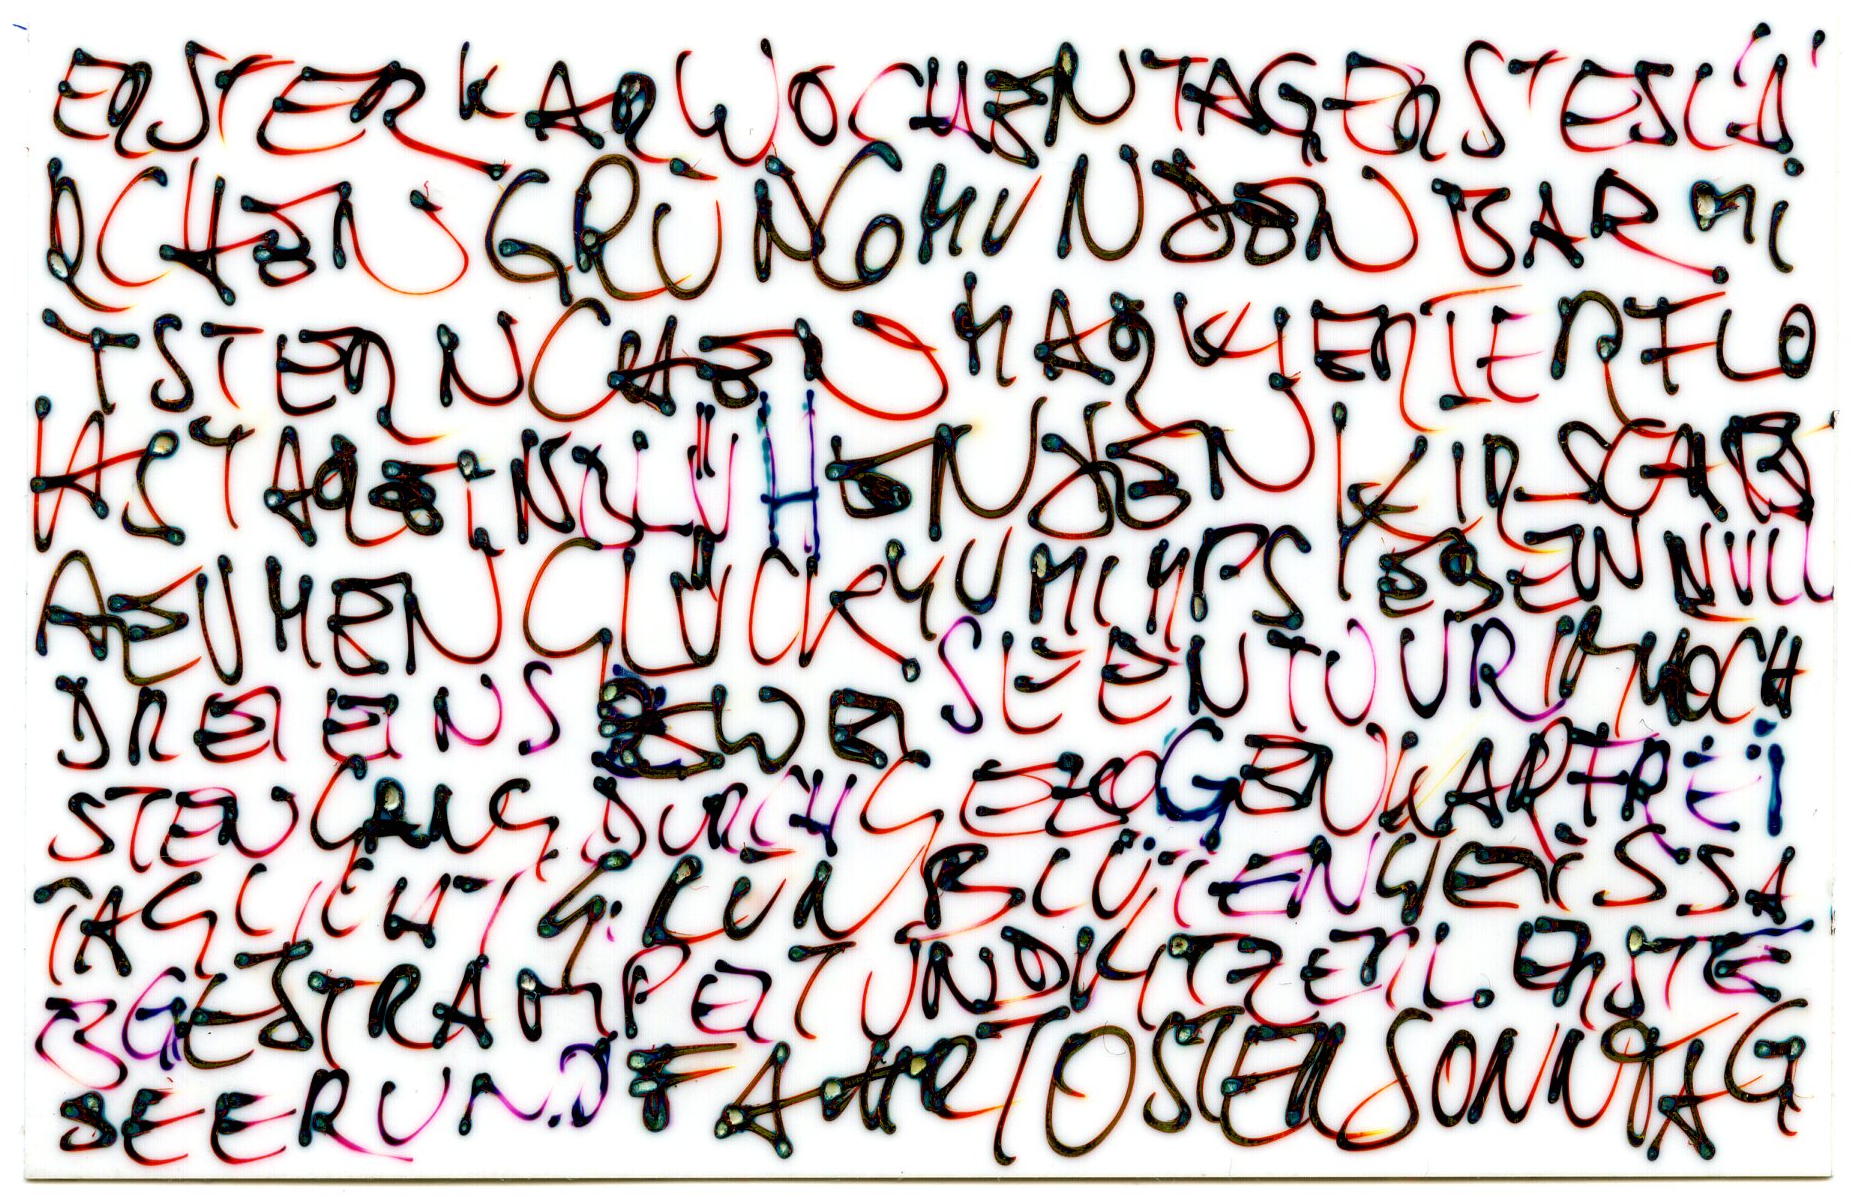 ERSTER KARWOCHENTAG ERSTES LÄ
RCHEN GRÜN GMUNDEN BAR MI
T STERNCHEN MARKIERTER FLO
H BLÜHENDEN KIRSCHB
AEUMEN GLÜCK NULL
DREI EINS ZWEI SEENTOUR IM HÖCH
STEN GANG DURCHGEZOGEN KARFREI
TAGLICHT GRÜN BLÜTENWEISS A
BGESTRAMPELT UND KITZERL ERSTE
SEERUNDFAHRT OSTERSONNTAG